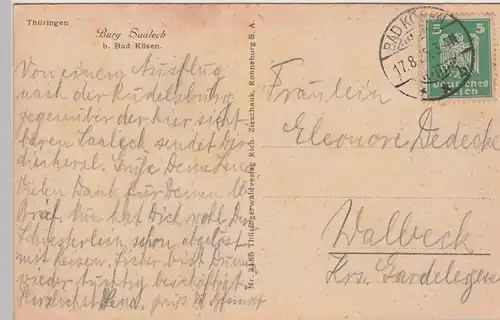 Thüringen
Burg Saaleck
b. Bad Kösen.
Von einem Ausflug
nach der Rudelsburg
gegenüber der hier sicht
baren Saaleck sendet Dir
die herzl. Grüße Dein
Vielen Dank für Deinen lb.
Brief. Nun hat Dich wohl Dein
Schwesterlein schon abgelöst
mit Reisen. Sicher bist Du nun
wieder tüchtig beschäftigt.
Herzlichst
Nr. 2185 Thüringerwaldverlag Rich. Zieschank, Ronneburg S.A.
BAD KÖSEN
17.8.25
5 5
Deutsches
Reich
Fräulein
Eleonore Dedecke
Walbeck
Krs. Gardelegen